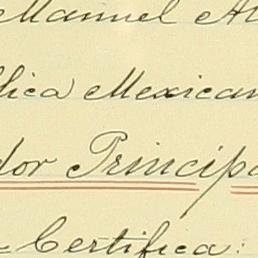 Manuel A
lica Mexican
dor Principa
Certifica: